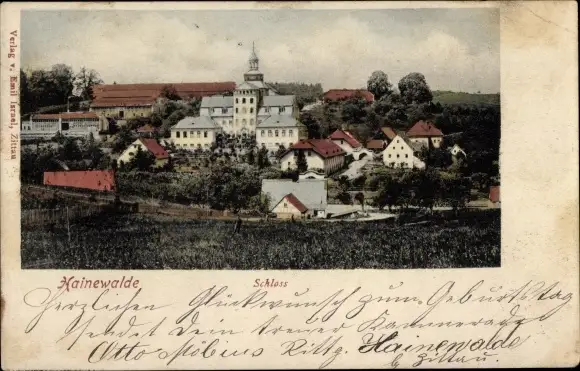 Verlag v. Emil Israel, Zittau
Hainewalde
Schloss
Herzlichen Glückwunsch zum Geburtstag
sendet dem treuer Kamerade
Otto Möbius Rittg. Hainewalde
b/ Zittau.